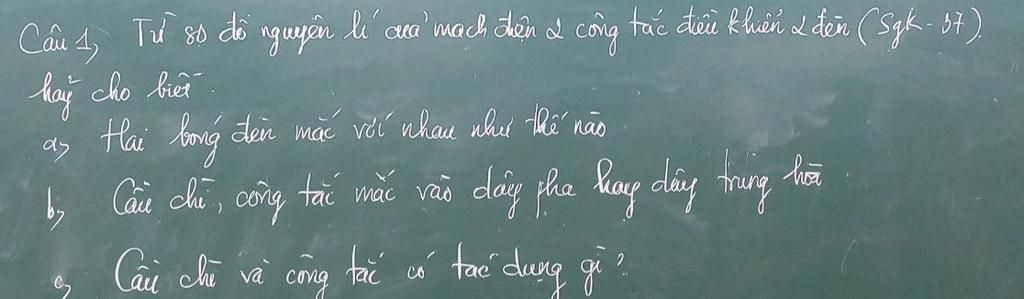 Câu 1, Từ sơ đồ nguyên lí của mạch điện 2 công tắc điều khiển 2 đèn (Sgk - 37).
hãy cho biết.
a, Hai bóng đèn mắc với nhau như thế nào
b, Cầu chì, công tắc mắc vào dây pha hay dây trung hòa
c, Cầu chì và công tắc có tác dụng gì?